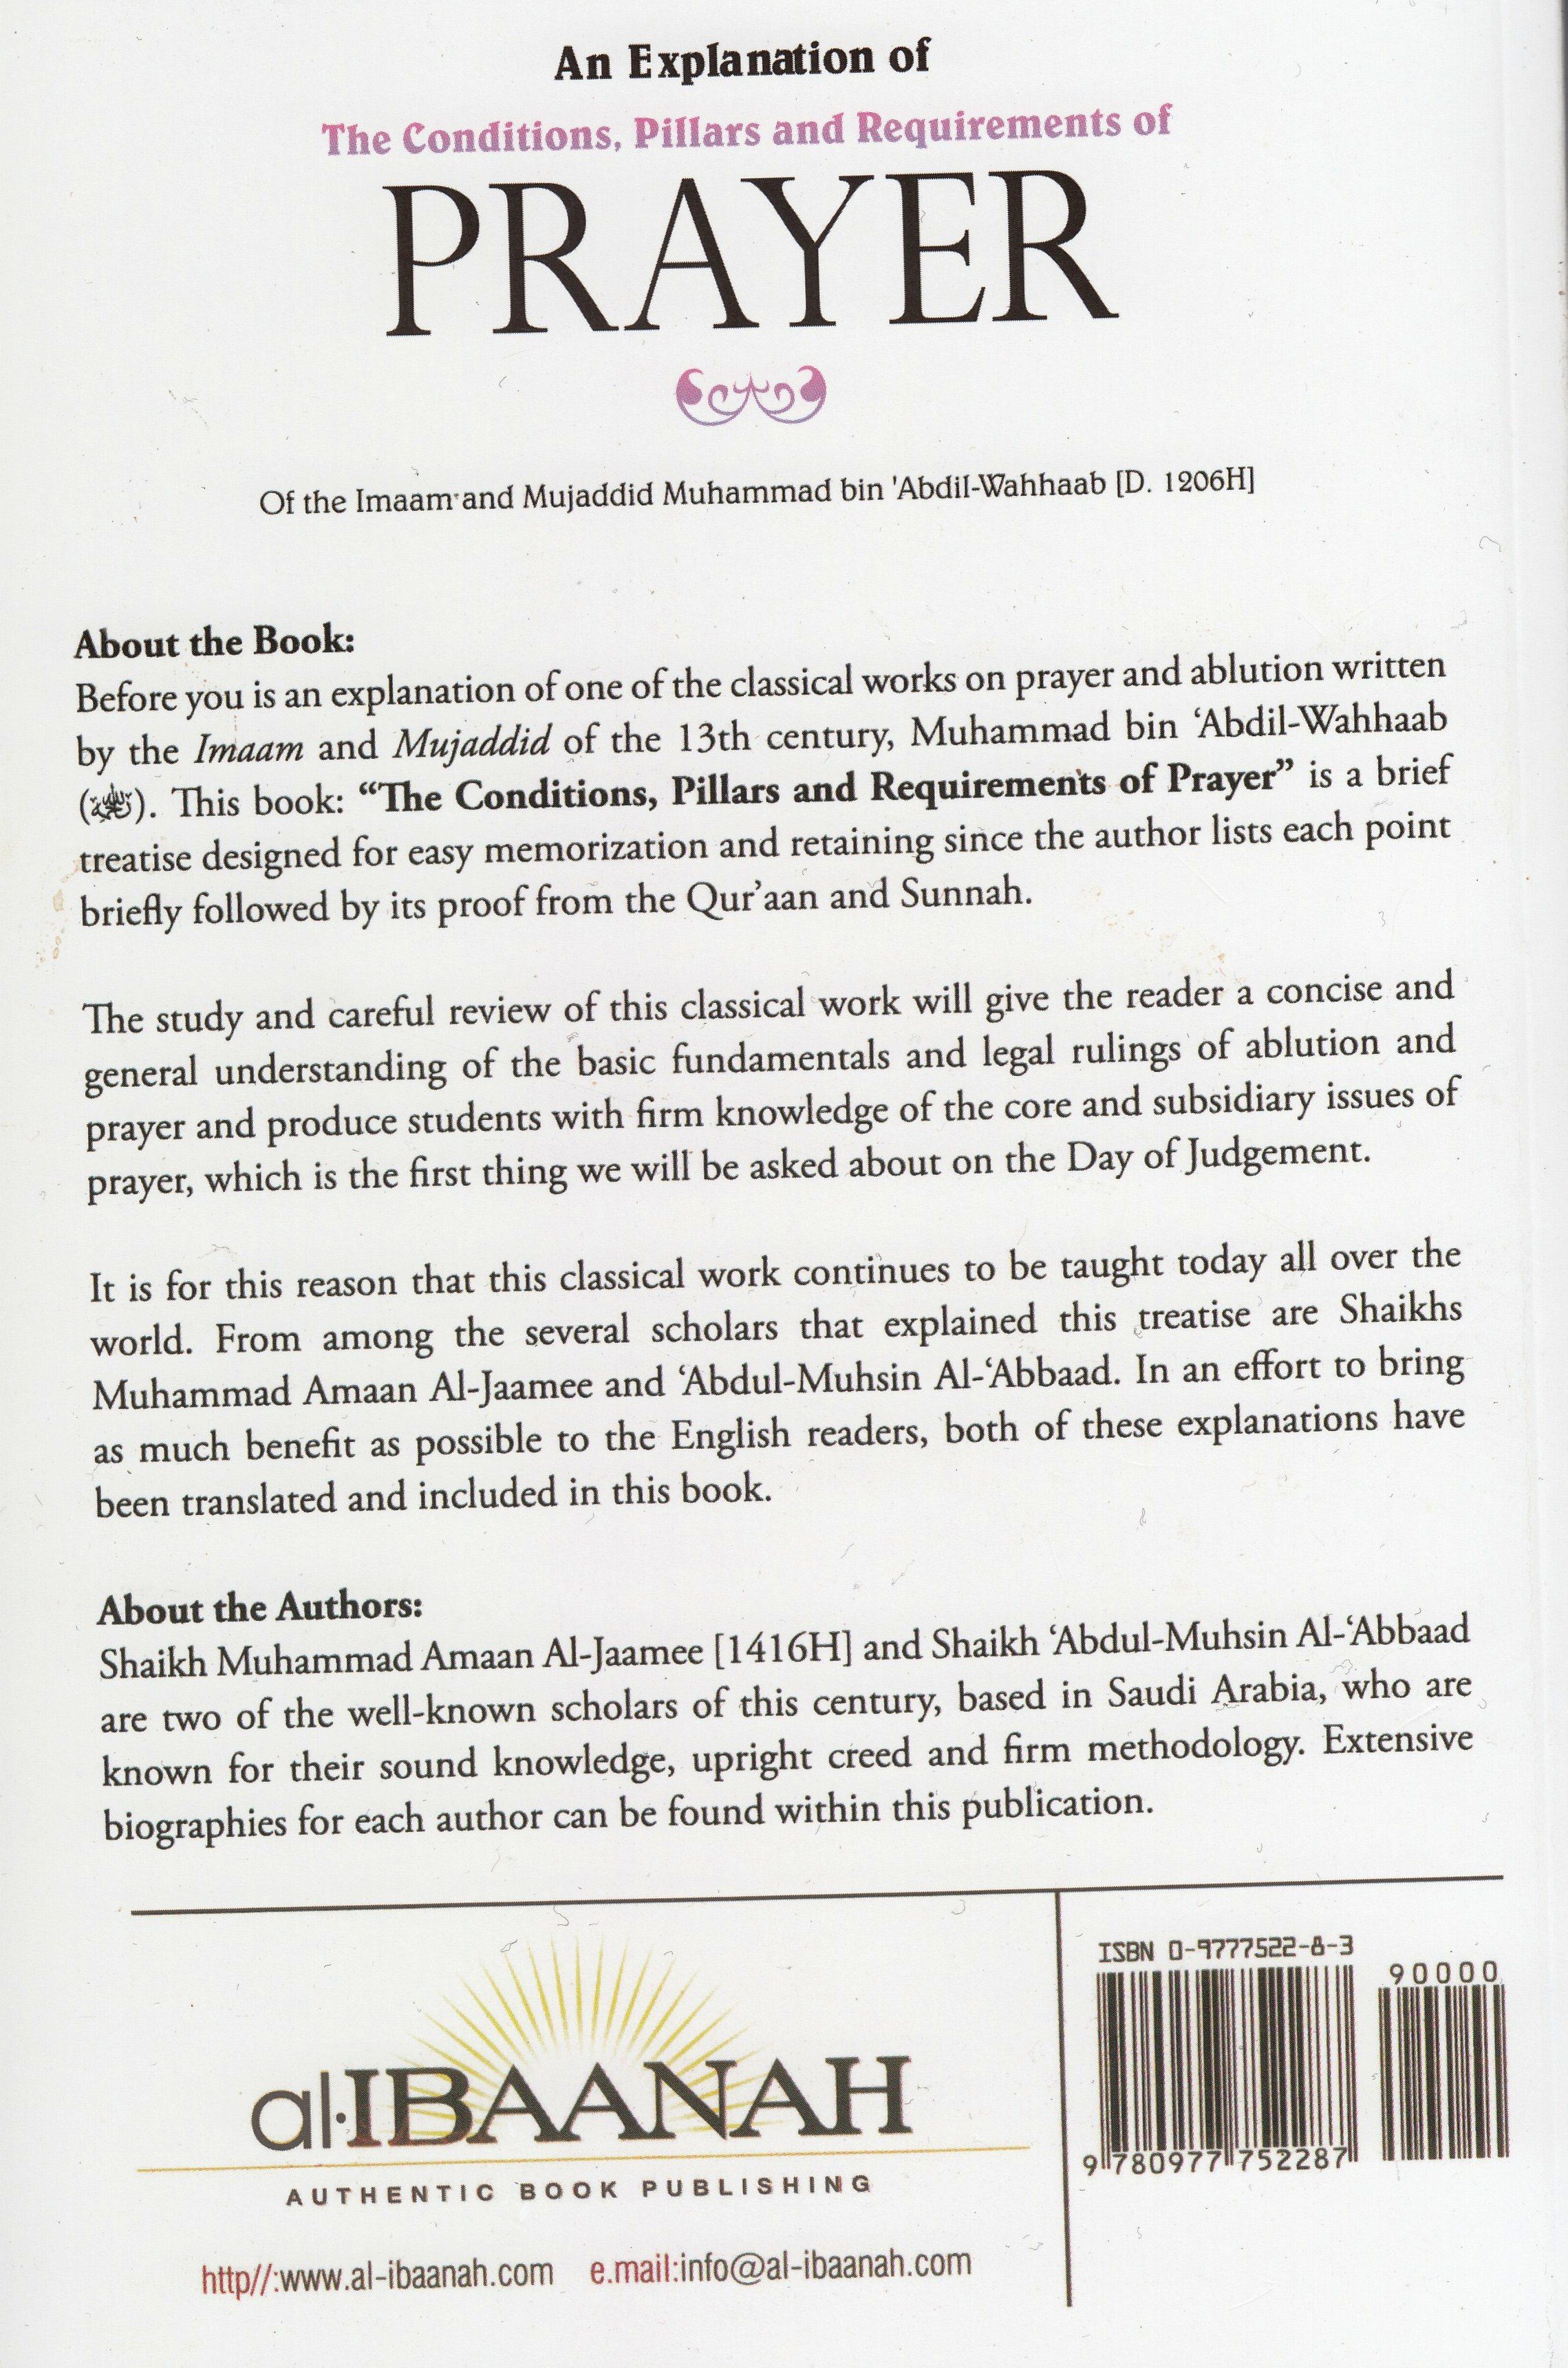 An Explanation of
The Conditions, Pillars and Requirements of
PRAYER
Of the Imaam and Mujaddid Muhammad bin 'Abdil-Wahhaab [D. 1206H]
About the Book:
Before you is an explanation of one of the classical works on prayer and ablution written
by the Imaam and Mujaddid of the 13th century, Muhammad bin ‘Abdil-Wahhaab
(). This book: “The Conditions, Pillars and Requirements of Prayer” is a brief
treatise designed for easy memorization and retaining since the author lists each point
briefly followed by its proof from the Qur’aan and Sunnah.
The study and careful review of this classical work will give the reader a concise and
general understanding of the basic fundamentals and legal rulings of ablution and
prayer and produce students with firm knowledge of the core and subsidiary issues of
prayer, which is the first thing we will be asked about on the Day of Judgement.
It is for this reason that this classical work continues to be taught today all over the
world. From among the several scholars that explained this treatise are Shaikhs
Muhammad Amaan Al-Jaamee and ‘Abdul-Muhsin Al-‘Abbaad. In an effort to bring
as much benefit as possible to the English readers, both of these explanations have
been translated and included in this book.
About the Authors:
Shaikh Muhammad Amaan Al-Jaamee [1416H] and Shaikh ‘Abdul-Muhsin Al-‘Abbaad
are two of the well-known scholars of this century, based in Saudi Arabia, who are
known for their sound knowledge, upright creed and firm methodology. Extensive
biographies for each author can be found within this publication.
al·IBAANAH
AUTHENTIC BOOK PUBLISHING
http//:www.al-ibaanah.com e.mail:info@al-ibaanah.com
ISBN 0-9777522-8-3
90000
9 780977 752287